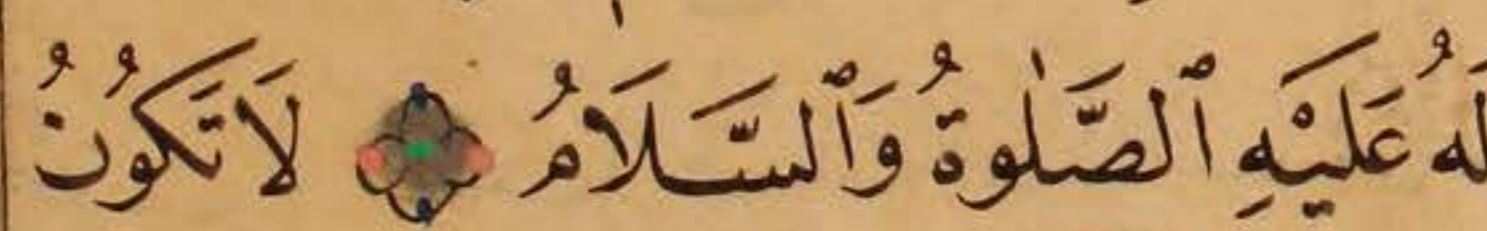 لَهُ عَلَيْهِ ٱلصَّلٰوةُ وَٱلسَّلَامُ لَا تَكُونُ